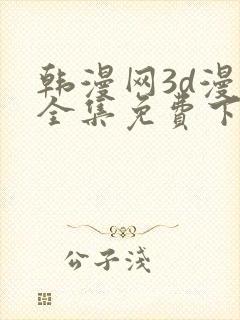 韩漫网3d漫
全集免费下
公子浅